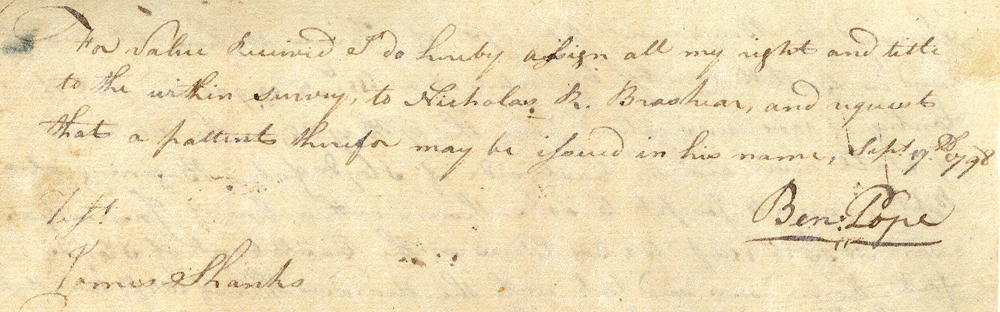 For Value Received I do hereby assign all my right and title
to the within survey, to Nicholas R. Brashear, and request
that a pattent therefor may be issued in his name, Sept. 17.th 1798
Ben: Pope
Test.
James Shanks